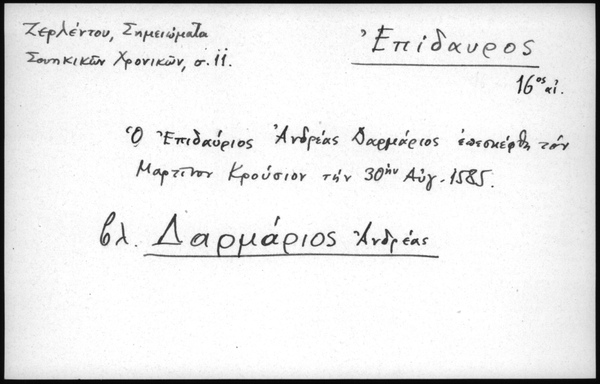 Ζερλέντου, Σημειώματα
Σουηκικῶν Χρονικῶν, σ. 11.
Ἐπίδαυρος
16ος αἰ.
Ὁ Ἐπιδαύριος Ἀνδρέας Δαρμάριος ἐπεσκέφθη τόν
Μαρτῖνον Κρούσιον τήν 30ήν Αὐγ. 1585.
βλ. Δαρμάριος Ἀνδρέας